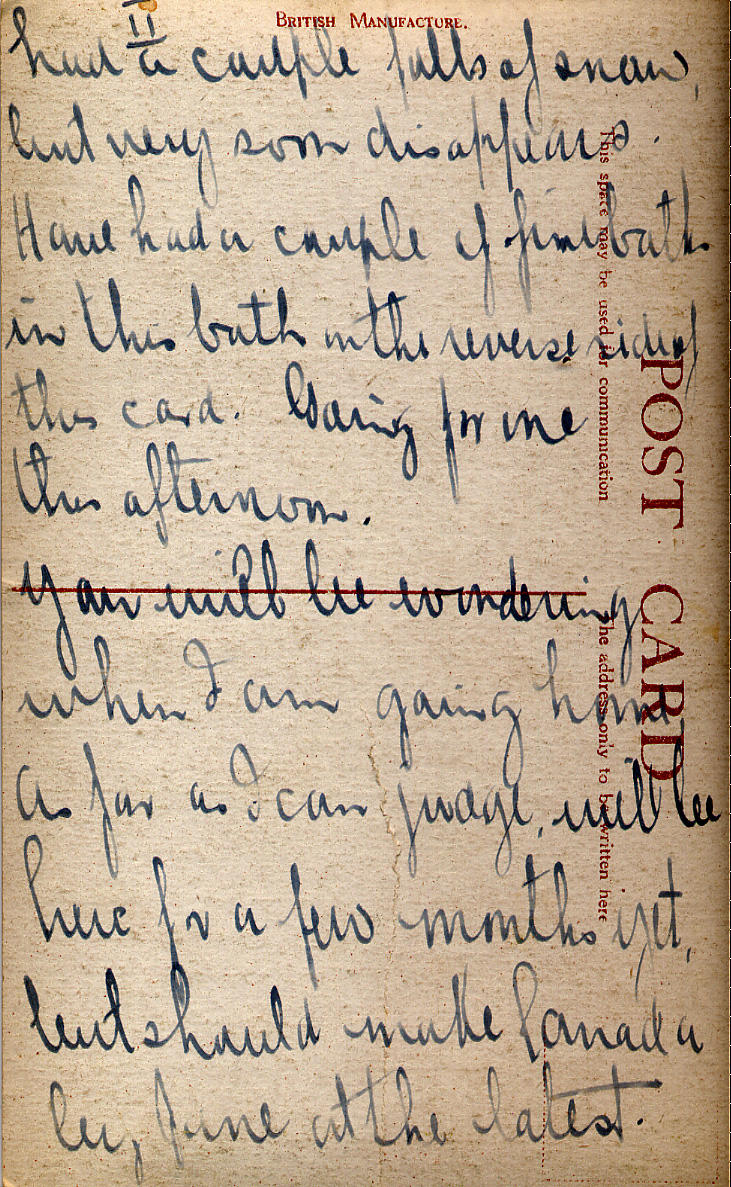 BRITISH MANUFACTURE.
II
had a couple falls of snow,
but very soon disappears.
Have had a couple of fine baths
in this bath on the reverse side of
this card. Going for one
this afternoon.
You will be wondering
when I am going home
As far as I can judge, will be
here for a few months yet,
but should make Canada
by June at the latest.
This space may be used for communication
The address only to be written here
POST CARD